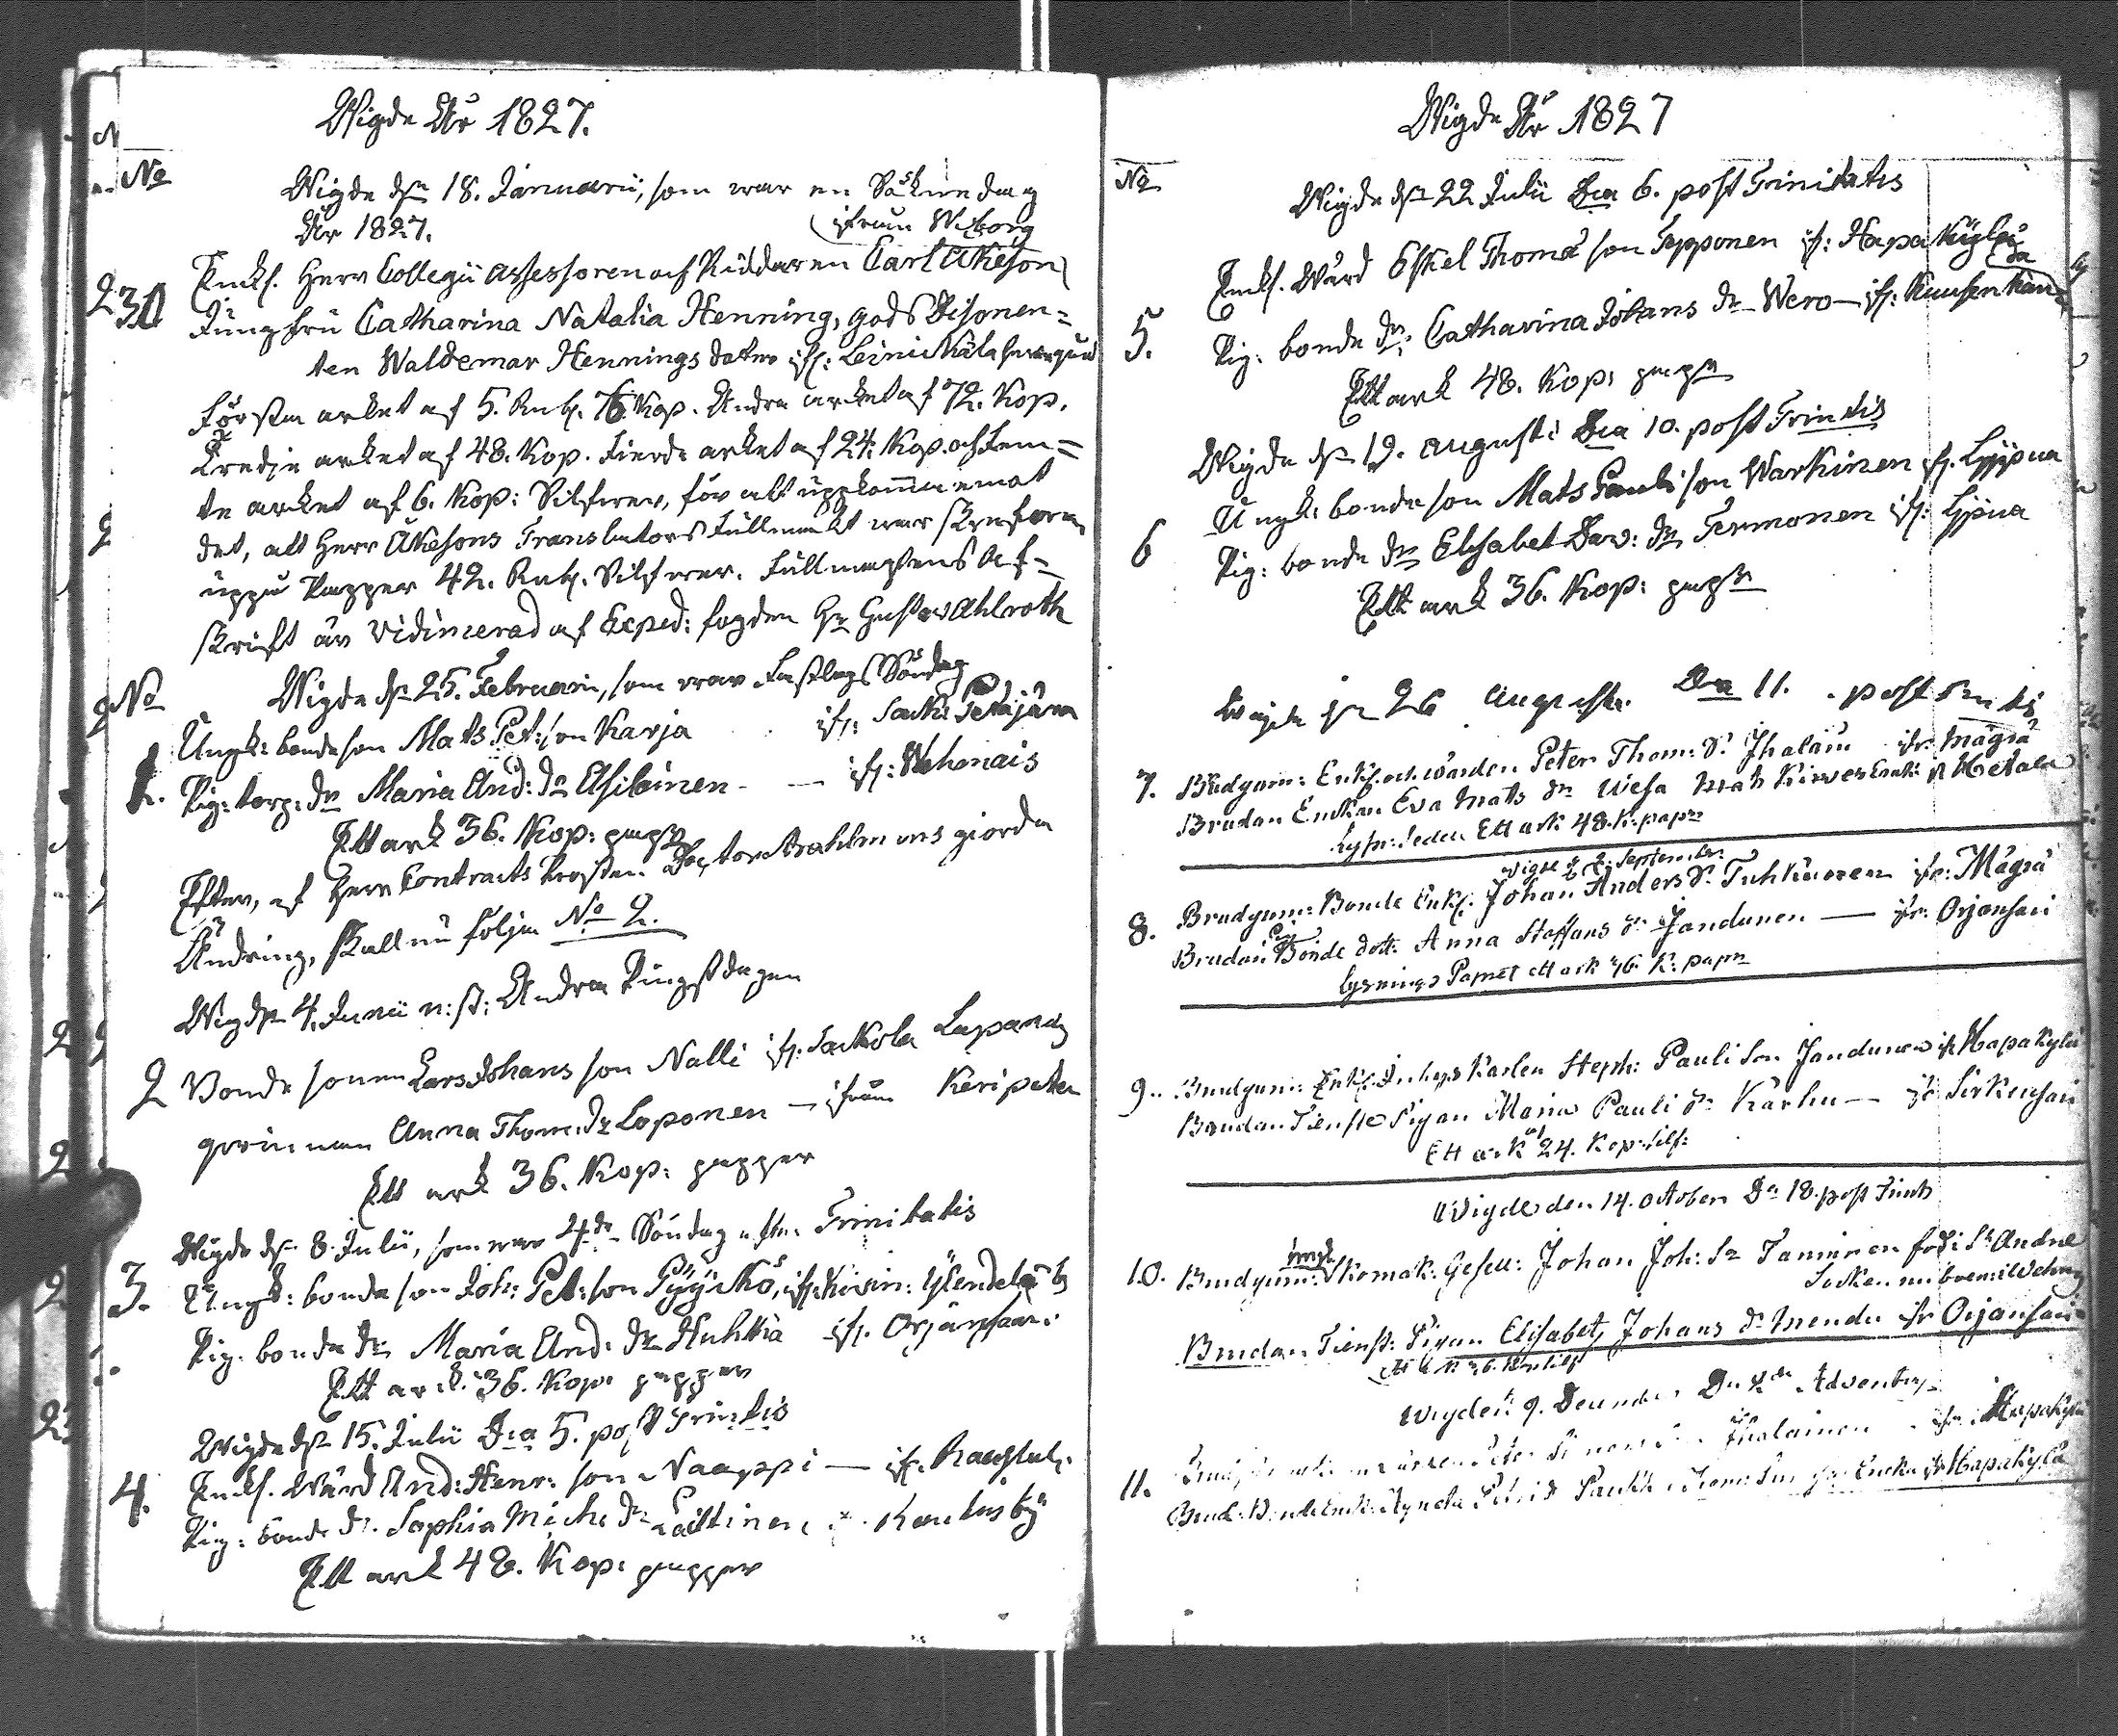 Wigde År 1827.
No
Wigde d:n 18. Januarii, som war en Söknedag
År 1827. ifrån Wiborg
Enkl. Herr Collegii Assessoren och Riddaren Carl Åkeson
230
Jungfru Catharina Natalia Henning, gods Disponen=
ten Waldemar Hennings dotter if:
Första arket af 5. Rub. 76. Kop. Andra arket af 72. Kop.
Tredje arket af 48. Kop. Fierde arket af 24. Kop. och Fem=
te arket af 6. Kop: Silfwer, för att uppkomma emot
det, att Herr Åkesons Translators Fullmakt war skrefwen
uppå Papper 42. Rub. Silfwer. Fullmagtens Af=
skrift är vidimerad af Exped: fogden Hr Gustav Ahlroth
No Wigde d:n 25. Februarii, som war Fastlags Söndag
1. Ungk: bondeson Mats Pet: son Karja if: Sack: Petäjärvi
Pig: torp: dr Maria And: dr Essiläinen — if: Wehmais
Ett ark 36. Kop: papper
Efter, af Herr Contracts Prosten Doctor Strahlman giorda
Ändring, skall nu följa No 2.
Wigd:n 4. Junii n: st: Andra Pingstdagen
2 Bonde sonen Lars Johans son Nalli if: Sackola Lapanais
qwinnan Anna Thom: dr Loponen — ifrån Keripata
Ett ark 36. Kop: papper
Wigde d:n 8. Julii, som war 4de Söndag efter Trinitatis
3. Ungk: bonde son Joh: Pet: son Pyykkö, if:
Pig: bonde dr Maria And: dr Huhtia if: Orjansaari
Ett ark 36. Kop: papper
Wigde d:n 15. Julii Dca 5. post Trin:tis
4. Enkl. Wärd And: Henr: son Naappi — if:
Pig: bonde dr Sophia Mich: dr Laittinen
Ett ark 48. Kop: papper
Wigde År 1827
No
Wigde d:n 22 Julii Dca 6. post Trinitatis
Enkl. Wärd Eskel Thomæ son Tepponen if: Hapakylä
5. Pig: bonde dr: Catharina Johans dr Wero — if:
Ett ark 48. Kop: papr
Wigde d:n 19. Augusti Dca 10. post Trin:tis
Ungk: bonde son Mats Pauli son Warkinen if: Lijpua
6 Pig: bonde dr Elisabet Dav: dr Termonen if: Lijpua
Ett ark 36. Kop: papr
Wigde d:n 26 Augusti Dca 11. post
7. Brudgum: Enkl. och wärden Peter Thom: S: Ihalain ifr: Mägrä
Brudan Enkan Eva Mats dr Wesa if Metala
Lysn: Sedeln Ett ark 48. K: papr
Wigde d 2: September
8. Brudgum: Bonde Enkl: Johan Anders S: Tuhkunen ifr: Mägrä
Brudan Pig Bonde dott: Anna Staffans dr Jandunen — ifr: Orjansari
Lysnings Papret ett ark 36. K: papr
9.. Brudgum: Enkl. Inhys Karlen Steph: Pauli Son Jandunen if Hapakylä
Brudan Tienste Pigan Maria Pauli dr Karhu — ifr Sirkensari
Ett ark af 24. Kop: silf:
Wigde den 14. October Dca 18. post Trinit
10. Brudgum: Ungk: Skomak: Gesell: Johan Joh: Sn Tamminen född i S:t Andræ
Socken nu boende i
Brudan Tienst: Pigan Elisabet, Johans dr Mendu ifr Orjansari
Ett ark 36. Kop silf
Wigde d: 9. December Dca 2da Adventus
11. Ihalainen ifr: Hapakylä
Brud: if Hapakylä